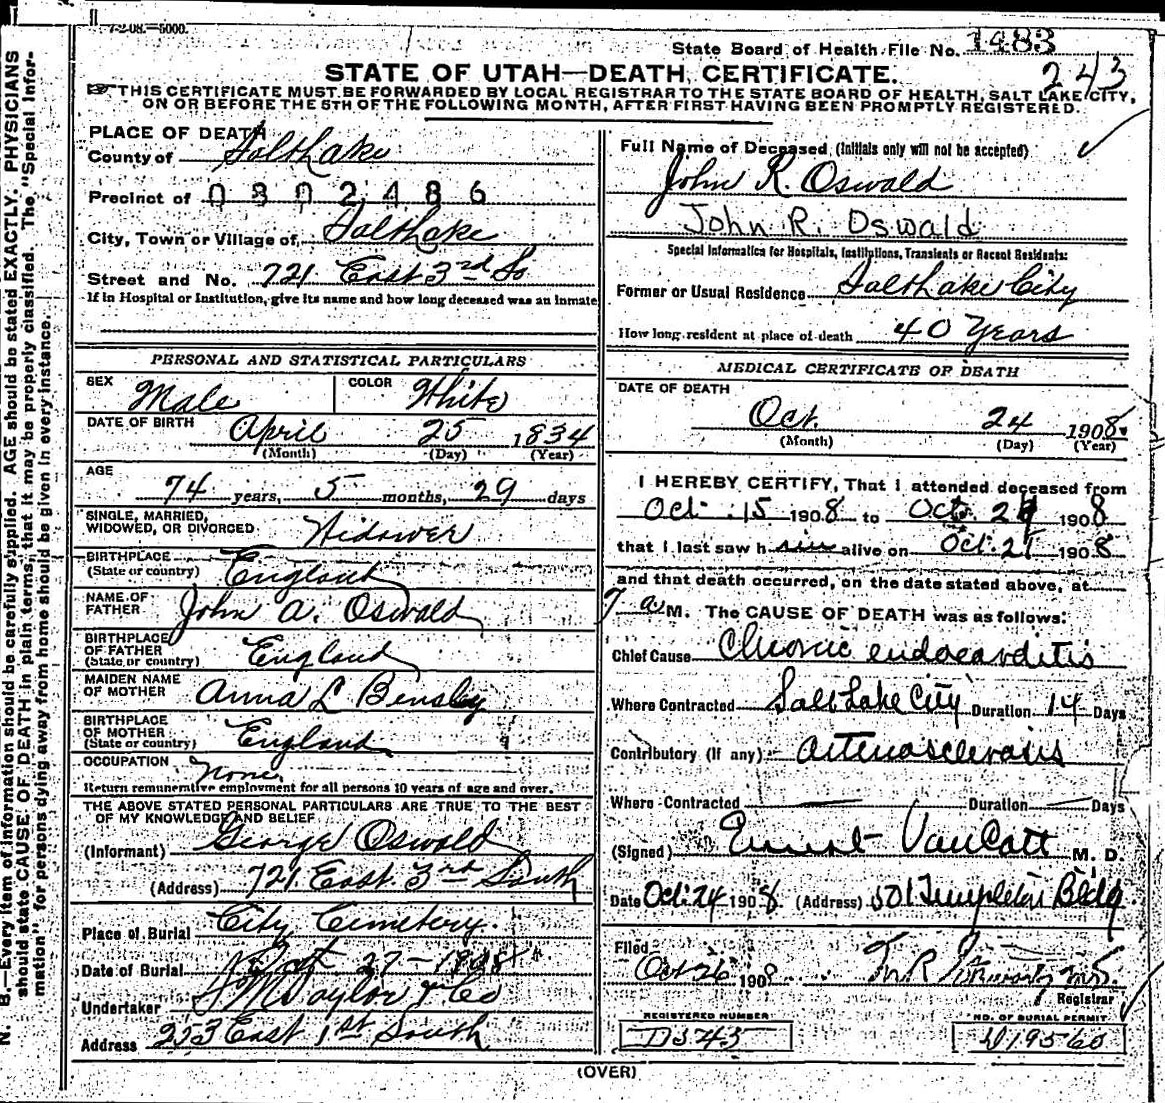 7-2-08.—5000.
State Board of Health File No. 1483
243
STATE OF UTAH—DEATH CERTIFICATE.
☞THIS CERTIFICATE MUST BE FORWARDED BY LOCAL REGISTRAR TO THE STATE BOARD OF HEALTH, SALT LAKE CITY,
ON OR BEFORE THE 5TH OF THE FOLLOWING MONTH, AFTER FIRST HAVING BEEN PROMPTLY REGISTERED.
N. B.—Every item of information should be carefully supplied. AGE should be stated EXACTLY. PHYSICIANS
should state CAUSE OF DEATH in plain terms, that it may be properly classified. The "Special Infor-
mation" for persons dying away from home should be given in every instance.
PLACE OF DEATH
County of Salt Lake
Precinct of 0802486
City, Town or Village of Salt Lake
Street and No. 721 East 3rd So
If in Hospital or Institution, give its name and how long deceased was an inmate
PERSONAL AND STATISTICAL PARTICULARS
SEX Male COLOR White
DATE OF BIRTH April 25 1834
(Month) (Day) (Year)
AGE 74 years, 5 months, 29 days
SINGLE, MARRIED,
WIDOWED, OR DIVORCED Widower
BIRTHPLACE
(State or country) England
NAME OF
FATHER John A. Oswald
BIRTHPLACE
OF FATHER
(State or country) England
MAIDEN NAME
OF MOTHER Anna L Bensley
BIRTHPLACE
OF MOTHER
(State or country) England
OCCUPATION None
Return remunerative employment for all persons 10 years of age and over.
THE ABOVE STATED PERSONAL PARTICULARS ARE TRUE TO THE BEST
OF MY KNOWLEDGE AND BELIEF
(Informant) George Oswald
(Address) 721 East 3rd South
Place of Burial City Cemetery.
Date of Burial Oct 27-1908
Undertaker Taylor & Co
Address 253 East 1st South
Full Name of Deceased (Initials only will not be accepted)
John R. Oswald
John R. Oswald
Special Information for Hospitals, Institutions, Transients or Recent Residents:
Former or Usual Residence Salt Lake City
How long resident at place of death 40 Years
MEDICAL CERTIFICATE OF DEATH
DATE OF DEATH
Oct. 24 1908.
(Month) (Day) (Year)
I HEREBY CERTIFY, That I attended deceased from
Oct. 15 1908 to Oct. 1908
that I last saw h im alive on Oct. 21 1908
and that death occurred, on the date stated above, at
7 a M. The CAUSE OF DEATH was as follows:
Chief Cause Chronic endocarditis
Where Contracted Salt Lake City Duration 14 Days
Contributory (If any) arteriosclerosis
Where Contracted Duration Days
(Signed) Ernest Van Cott M. D.
Date Oct. 24 1908. (Address) 501 Templeton Bldg
Filed
Oct 26 1908 Registrar
REGISTERED NUMBER
D 343
NO. OF BURIAL PERMIT
D 19560
(OVER)